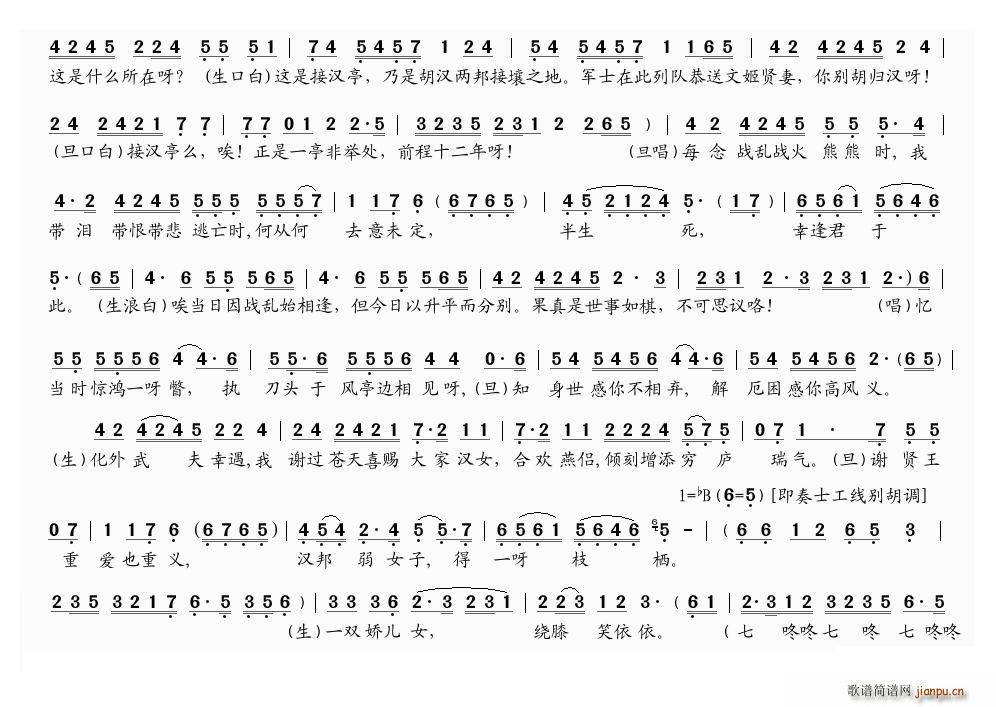 4245 224 55 51 | 74 5457 1 24 | 54 5457 1 165 | 42 4245 24 |
这是什么所在呀？（生口白）这是接汉亭，乃是胡汉两邦接壤之地。军士在此列队恭送文姬贤妻，你别胡归汉呀！
24 2421 7 7 | 77 01 2 2·5 | 3235 231 2 265 ） | 42 4245 55 5·4 |
（旦口白）接汉亭么，唉！正是一亭非举处，前程十二年呀！ （旦唱）每念 战乱战火 熊熊 时，我
4·2 4245 555 5557 | 1 176 6（6765） | 45 2124 5·（17） | 6561 5646 |
带泪 带恨带悲 逃亡时，何从何 去意未定， 半生 死， 幸逢君 于
5·（65 | 4·6 55 565 | 4·6 55 565 | 42 4245 2·3 | 231 2·3 231 2·）6 |
此。（生浪白）唉当日因战乱始相逢，但今日以升平而分别。果真是世事如棋，不可思议咯！ （唱）忆
55 5556 4 4·6 | 55·6 5556 44 0·6 | 54 5456 44·6 | 54 5456 2·（65） |
当时惊鸿一呀瞥， 执 刀头于 风亭边相见呀，（旦）知 身世感你不相弃， 解 厄困感你高风义。
42 4245 22 4 | 24 2421 7·2 11 | 7·2 11 2224 575 | 07 1 · 7 55
（生）化外武 夫幸遇，我 谢过苍天喜赐大家汉女，合欢燕侣，倾刻增添穷 庐 瑞气。（旦）谢 贤王
1=♭B（6=5）［即奏士工线别胡调］
07 | 1 176 （6765） | 454 2·4 5 5·7 | 6561 5646 65 - | （66 12 65 3 |
重 爱也重义， 汉邦 弱女子，得 一呀 枝 栖。
235 3217 6·5 356 ） | 33 36 2·3 231 | 223 12 3·（61 | 2·312 3235 6·5
（生）一双娇儿女， 绕膝 笑依依。 （七 咚咚七 咚 七咚咚
歌谱简谱网 jianpu.cn